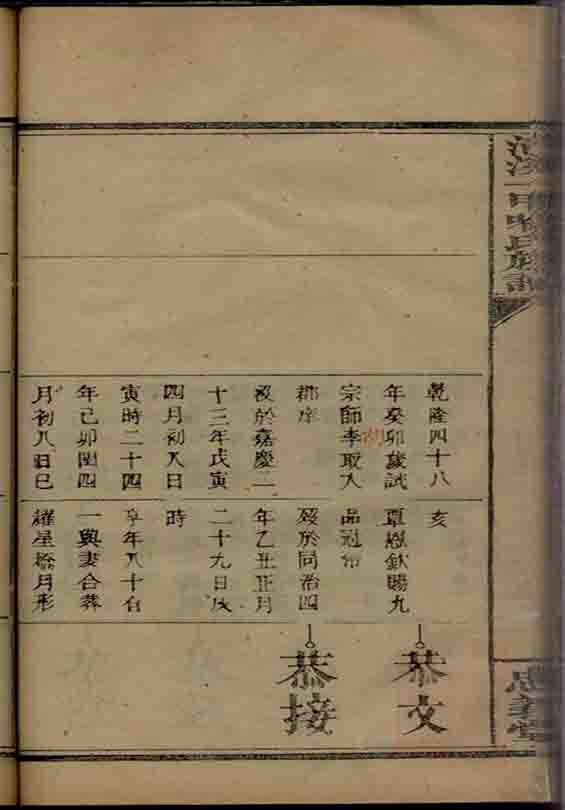 氏族譜
乾隆四十八
年癸卯歲試
宗師李取入
郡庠
歿於嘉慶二
十三年戊寅
四月初八日
寅時二十四
年己卯閏四
月初八日巳
亥
覃恩欽賜九
品冠帶
歿於同治四
年乙丑正月
二十九日戌
時
享年八十有
一與妻合葬
羅星橋月形
恭文
恭接